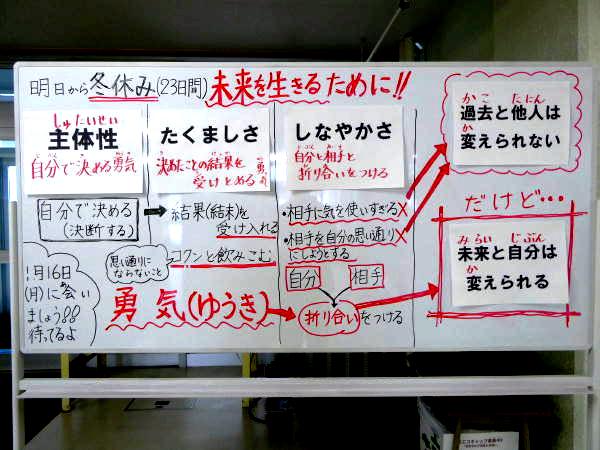 明日から冬休み(23日間)未来を生きるために!!
しゅたいせい
主体性
自分で決める勇気
たくましさ
決めたことの結果を
受けとめる勇気
しなやかさ
自分と相手と
折り合いをつける
かこ たにん
過去と他人は
か
変えられない
だけど…
みらい じぶん
未来と自分は
か
変えられる
自分で決める
(決断する)
結果(結末)を
受け入れる
思い通りに
ならないこと
ゴクンと飲みこむ
・相手に気を使いすぎる×
・相手を自分の思い通り×
にしようとする
自分 相手
折り合いをつける
勇気(ゆうき)
1月16日
(月)に会い
ましょう!!
待ってるよ